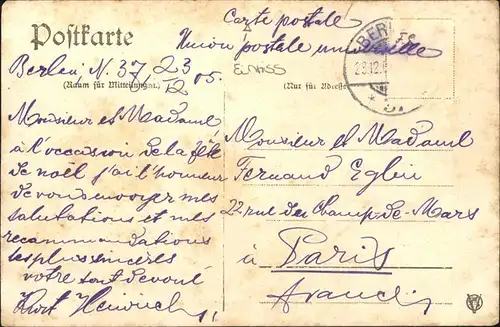 Carte postale
Postkarte
Union postale universelle
Berlin N. 37, 23/12 05.
(Raum für Mitteilungen.)
Monsieur et Madame
à l'occasion de la fête
de noël j'ai l'honneur
de vous envoyer mes
salutations et mes
recommandations
les plus sincères
votre tout dévoué
Kurt Heinrich
(Nur für Adresse)
Monsieur et Madame
Fernand Eglin
22 rue du Champ-de-Mars
à Paris
BERLIN
23.12.